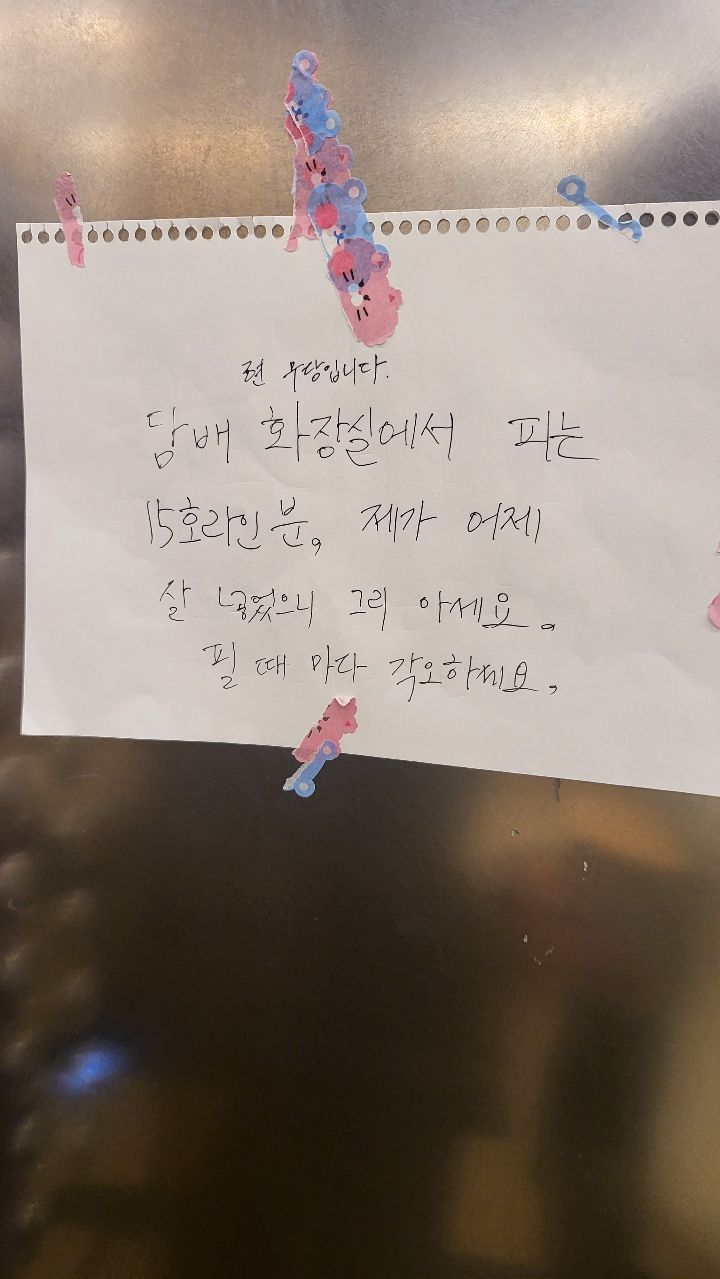 현 무당입니다.
담배 화장실에서 피는
15호라인분, 제가 어제
살 넣었으니 그리 아세요.
필 때 마다 각오하세요,